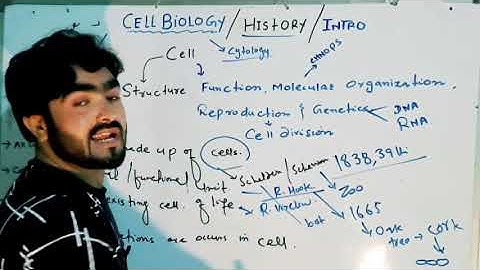 CELL BIOLOGY / HISTORY / INTRO
Cytology
Cell
CHNOPS
Structure Function, Molecular Organization,
Reproduction & Genetics DNA
RNA
Cell division
made up of cells.
Schleiden / Schwann 1838, 39
/functional Unit R. Hook 200
existing cell. of life R. Virchow
bot 1665
Oak cork
tree
are occurs in cell.